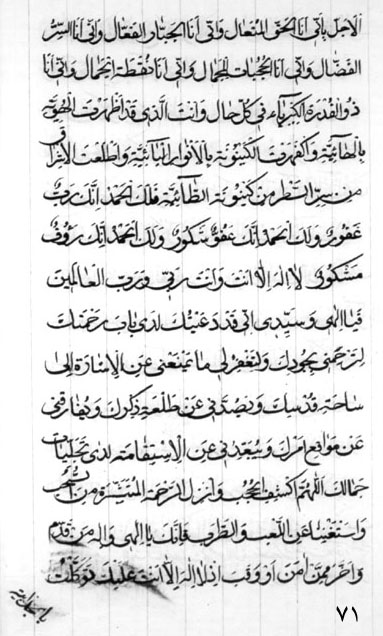 الاجل بانی انا الحق المتعال وانی انا الجبار الفعال وانی انا السر
الفضال وانی انا الحجبات للجمال وانی انا نقطة الجمال وانی انا
ذو القدرة والکبریاء فی کل حال وانت الذی قد اظهرت الهویة
بالهائیة وکفهرت الکینونة بالانوار البائیة واطلعت الاشراق
من سر السطر من کینونة الطائیة فلک الحمد انک رب
غفور ولک الحمد انک عفو شکور ولک الحمد انک رؤف
مشکور لا اله الا انت وانت ربی ورب العالمین
فیا الهی وسیدی انی قد دعیتک لدی باب رحمتک
لترحمنی بجودک ولتغفر لی ما تمنعنی عن الاشارة الی
ساحة قدسک و تصدنی عن طلعة ذکرک و یفارقنی
عن مواقع امرک ویبعدنی عن الاستقامة لدی تجلیات
جمالک اللهم اکشف الحجب وانزل الرحمة المنتشرة من السحب
واستغیثنا عن اللعب والطرب فانک یا الهی واله من تقدم
واخر ممن امن او وقب اذ لا اله الا انت علیک توکلت
۷۱